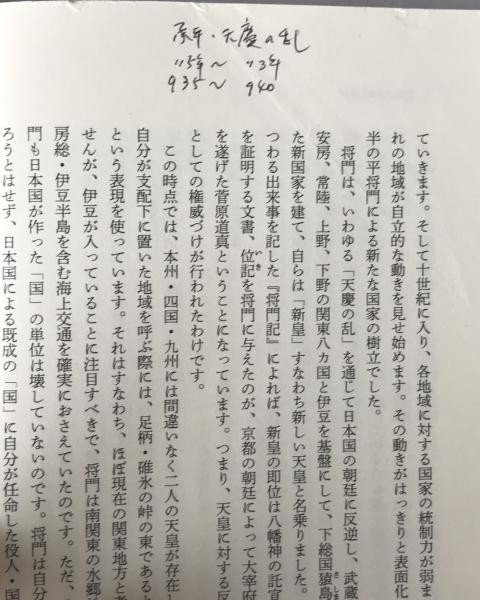 承平・天慶の乱
〃5年〜 〃3年
935〜 940
ていきます。そして十世紀に入り、各地域に対する国家の統制力が弱ま
れの地域が自立的な動きを見せ始めます。その動きがはっきりと表面化
半の平将門による新たな国家の樹立でした。
将門は、いわゆる「天慶の乱」を通じて日本国の朝廷に反逆し、武蔵
安房、常陸、上野、下野の関東八ヵ国と伊豆を基盤にして、下総国猿島
た新国家を建て、自らは「新皇」すなわち新しい天皇と名乗りました。
つわる出来事を記した『将門記』によれば、新皇の即位は八幡神の託宣
を証明する文書、位記を将門に与えたのが、京都の朝廷によって大宰府
を遂げた菅原道真ということになっています。つまり、天皇に対する反
としての権威づけが行われたわけです。
この時点では、本州・四国・九州には間違いなく二人の天皇が存在し
自分が支配下に置いた地域を呼ぶ際には、足柄・碓氷の峠の東である
という表現を使っています。それはすなわち、ほぼ現在の関東地方と
せんが、伊豆が入っていることに注目すべきで、将門は南関東の水郷
房総・伊豆半島を含む海上交通を確実におさえていたのです。ただ、
門も日本国が作った「国」の単位は壊していないのです。将門は自分
ろうとはせず、日本国による既成の「国」に自分が任命した役人・国